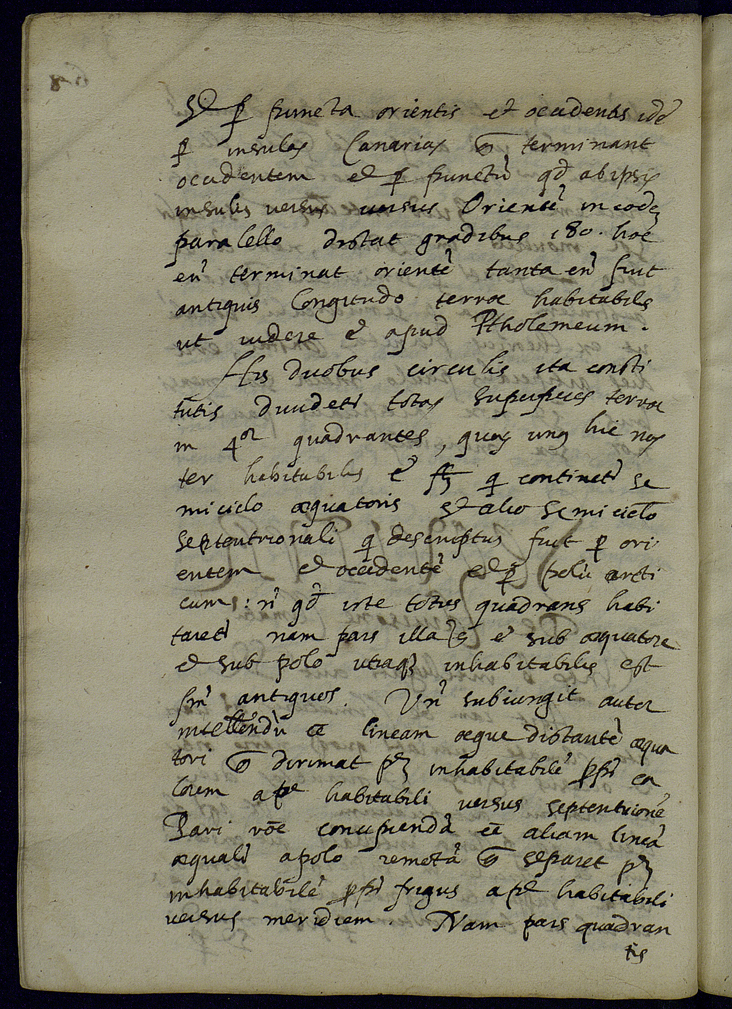 et p̱ puncta orientis et occidentis idē
p̱ insulas Canarias q̃ terminant
occidentem et p̱ punctũ qđ ab ipsis
insulis versus versus Orientẽ in eodẽ
paralello distat gradibus 180. hoc
eñ terminat orientẽ tanta eñ fuit
antiquis longitudo terræ habitabilis
ut videre ẽ apud Ptholemeum.
His duobus circulis ita consti
tutis diuidetr totas superficies terræ
in 4or quadrantes, quorum unus hic nos
ter habitabilis ẽ q continetr se
micirclo æquatoris et alio semicirclo
septentrionali q descriptus fuit p̱ ori
entem et occidentẽ et p̱ polũ arcti
cum: ñ qđ iste totus quadrans habi
taretr nam pars illa quæ ẽ sub æquatore
et sub polo utraq inhabitabilis est
scđm antiquos. Uñ subiungit autor
intelligendũ ẽe lineam æque distantẽ æqua
tori q̃ dirimat ptẽ inhabitabilẽ propter ca
lorem a pte habitabili versus septentrionẽ
Pari rõe concipiendã ẽe aliam lineã
æqualr a polo remotã q̃ separet ptẽ
inhabitabilẽ propter frigus a pte habitabili
versus meridiem. Nam pars quadran
tis